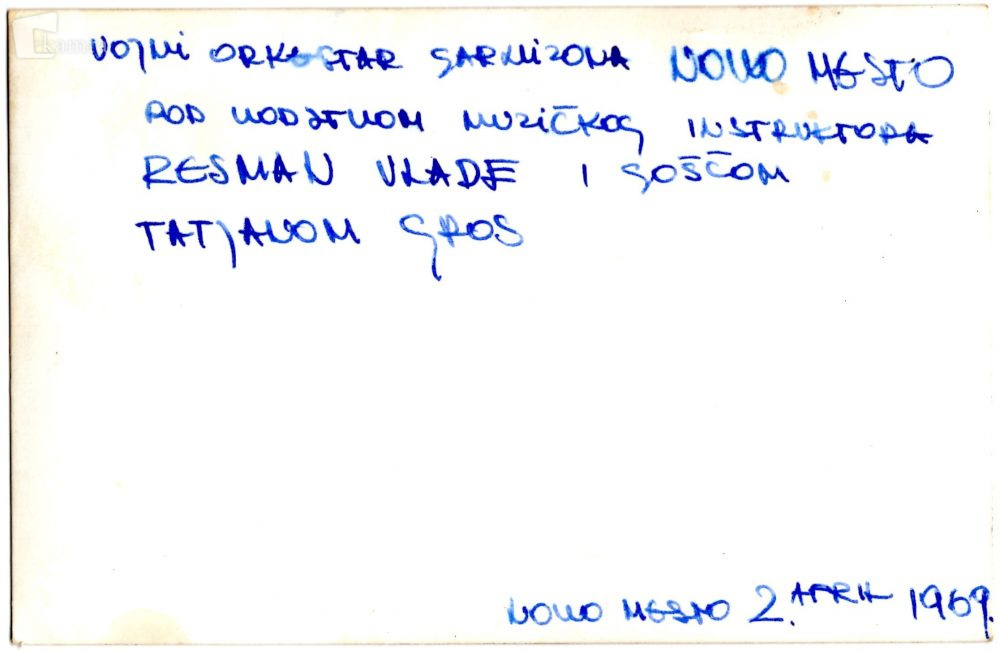 kamra
VOJNI ORKESTAR GARNIZONA NOVO MESTO
POD VODSTVOM MUZIČKOG INSTRUKTORA
RESMAN VLADE I GOŠČOM
TATJANOM GROS
NOVO MESTO 2. APRIL 1969.